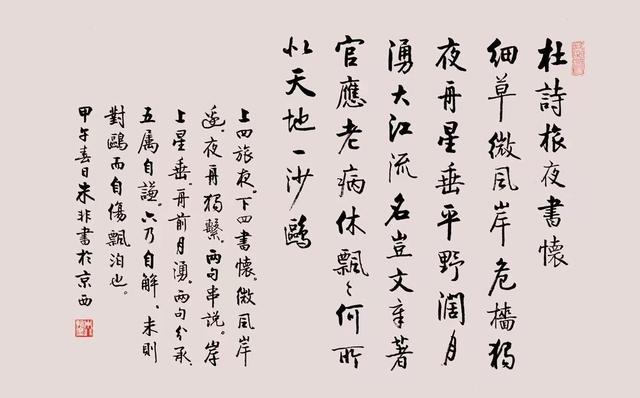 杜詩旅夜書懷
細草微風岸危檣獨
夜舟星垂平野闊月
湧大江流名豈文章著
官應老病休飄〻何所
似天地一沙鷗
上四旅夜。下四書懷。微風岸
邊。夜舟獨繫。兩句串說。岸
上星垂。舟前月湧。兩句分承
五属自謙。六乃自解。末則
對鷗而自傷飄泊也。
甲午春日朱非書於京西